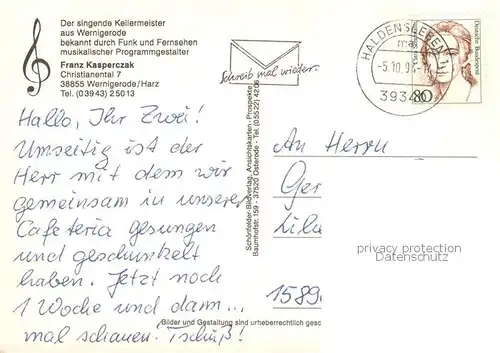 Der singende Kellermeister
aus Wernigerode
bekannt durch Funk und Fernsehen
musikalischer Programmgestalter
Franz Kasperczak
Christianental 7
38855 Wernigerode/Harz
Tel. (03943) 25013
Schreib mal wieder.
HALDENSLEBEN 1
-5.10.9
3934
80
Deutsche Bundespost
Hallo, Ihr Zwei!
Umseitig ist der
Herr mit dem wir
gemeinsam in unserer
Cafeteria gesungen
und geschunkelt
haben. Jetzt noch
1 Woche und dann...
mal schauen! Tschüß!
Schönfelder-Bildverlag, Ansichtskarten - Prospekte
Baumhofstr. 159 - 37520 Osterode - Tel. (05522) 4206
An Herrn
Ger
Lilu
1589
privacy protection
Datenschutz
Bilder und Gestaltung sind urheberrechtlich gesc